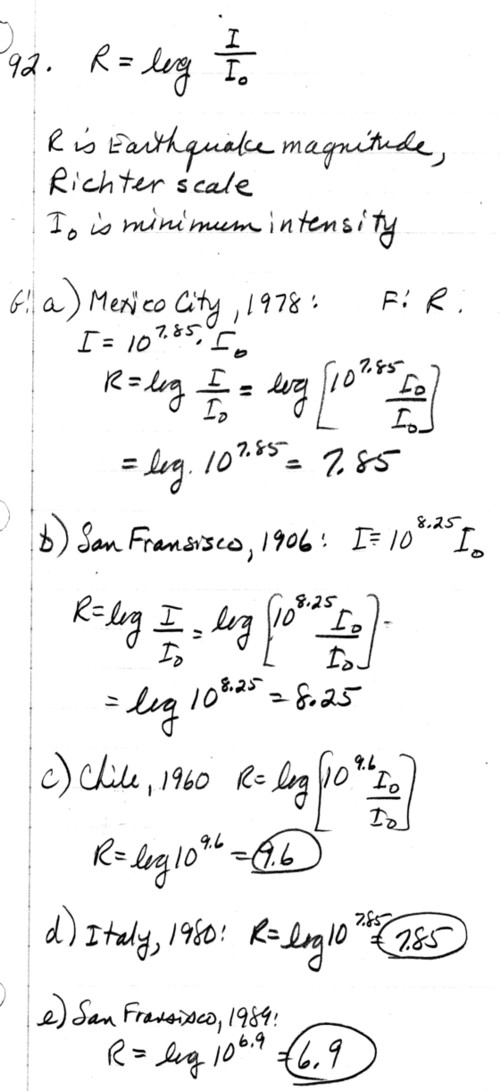 92. R = log I/I₀
R is Earthquake magnitude,
Richter scale
I₀ is minimum intensity
G: a) Mexico City, 1978: F: R.
I = 10^7.85 · I₀
R = log I/I₀ = log [10^7.85 I₀/I₀]
= log. 10^7.85 = 7.85
b) San Fransisco, 1906: I = 10^8.25 I₀
R = log I/I₀ = log [10^8.25 I₀/I₀] -
= log 10^8.25 = 8.25
c) Chile, 1960 R = log [10^9.6 I₀/I₀]
R = log 10^9.6 = 9.6
d) Italy, 1980: R = log 10^7.85 = 7.85
e) San Fransisco, 1989:
R = log 10^6.9 = 6.9